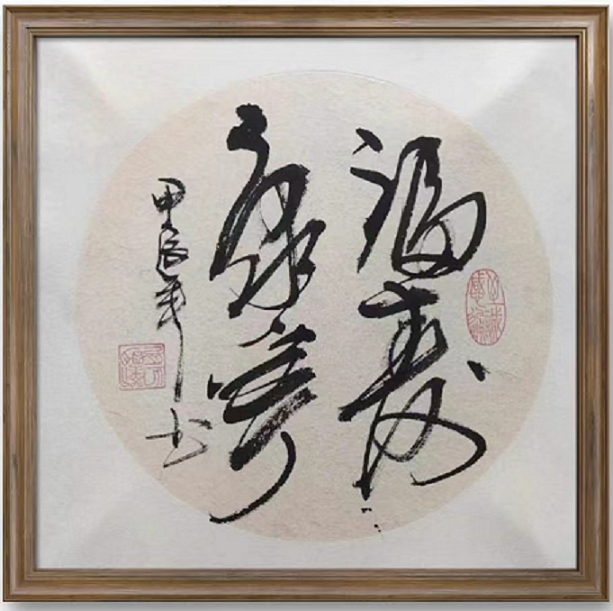 福寿
康寧
甲辰年书